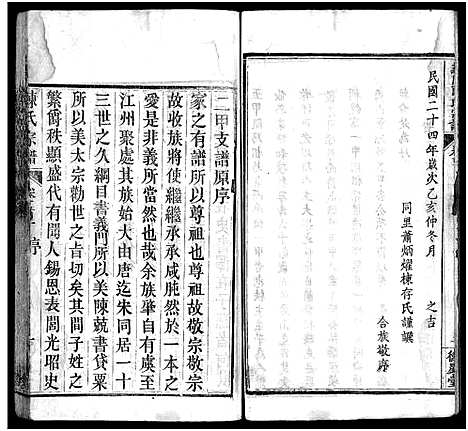 民國二十四年歲次乙亥仲冬月
之吉
同里蕭炳燿棟存氏謹譔
合族敬奔
二甲支譜原序
家之有譜所以尊祖也尊祖故敬宗敬宗
故收族將使繼繼承承咸肫然於一本之
愛是非義所當然也哉余族肇自有虞至
江州聚處其族始大由唐迄宋同居一十
三世之久綱目書義門所以美陳兢書貸粟
所以美太宗勸世之旨切矣其間子姓之
繁爵秩顯盛代有聞人錫恩表閭光昭史
陳氏宗譜
序